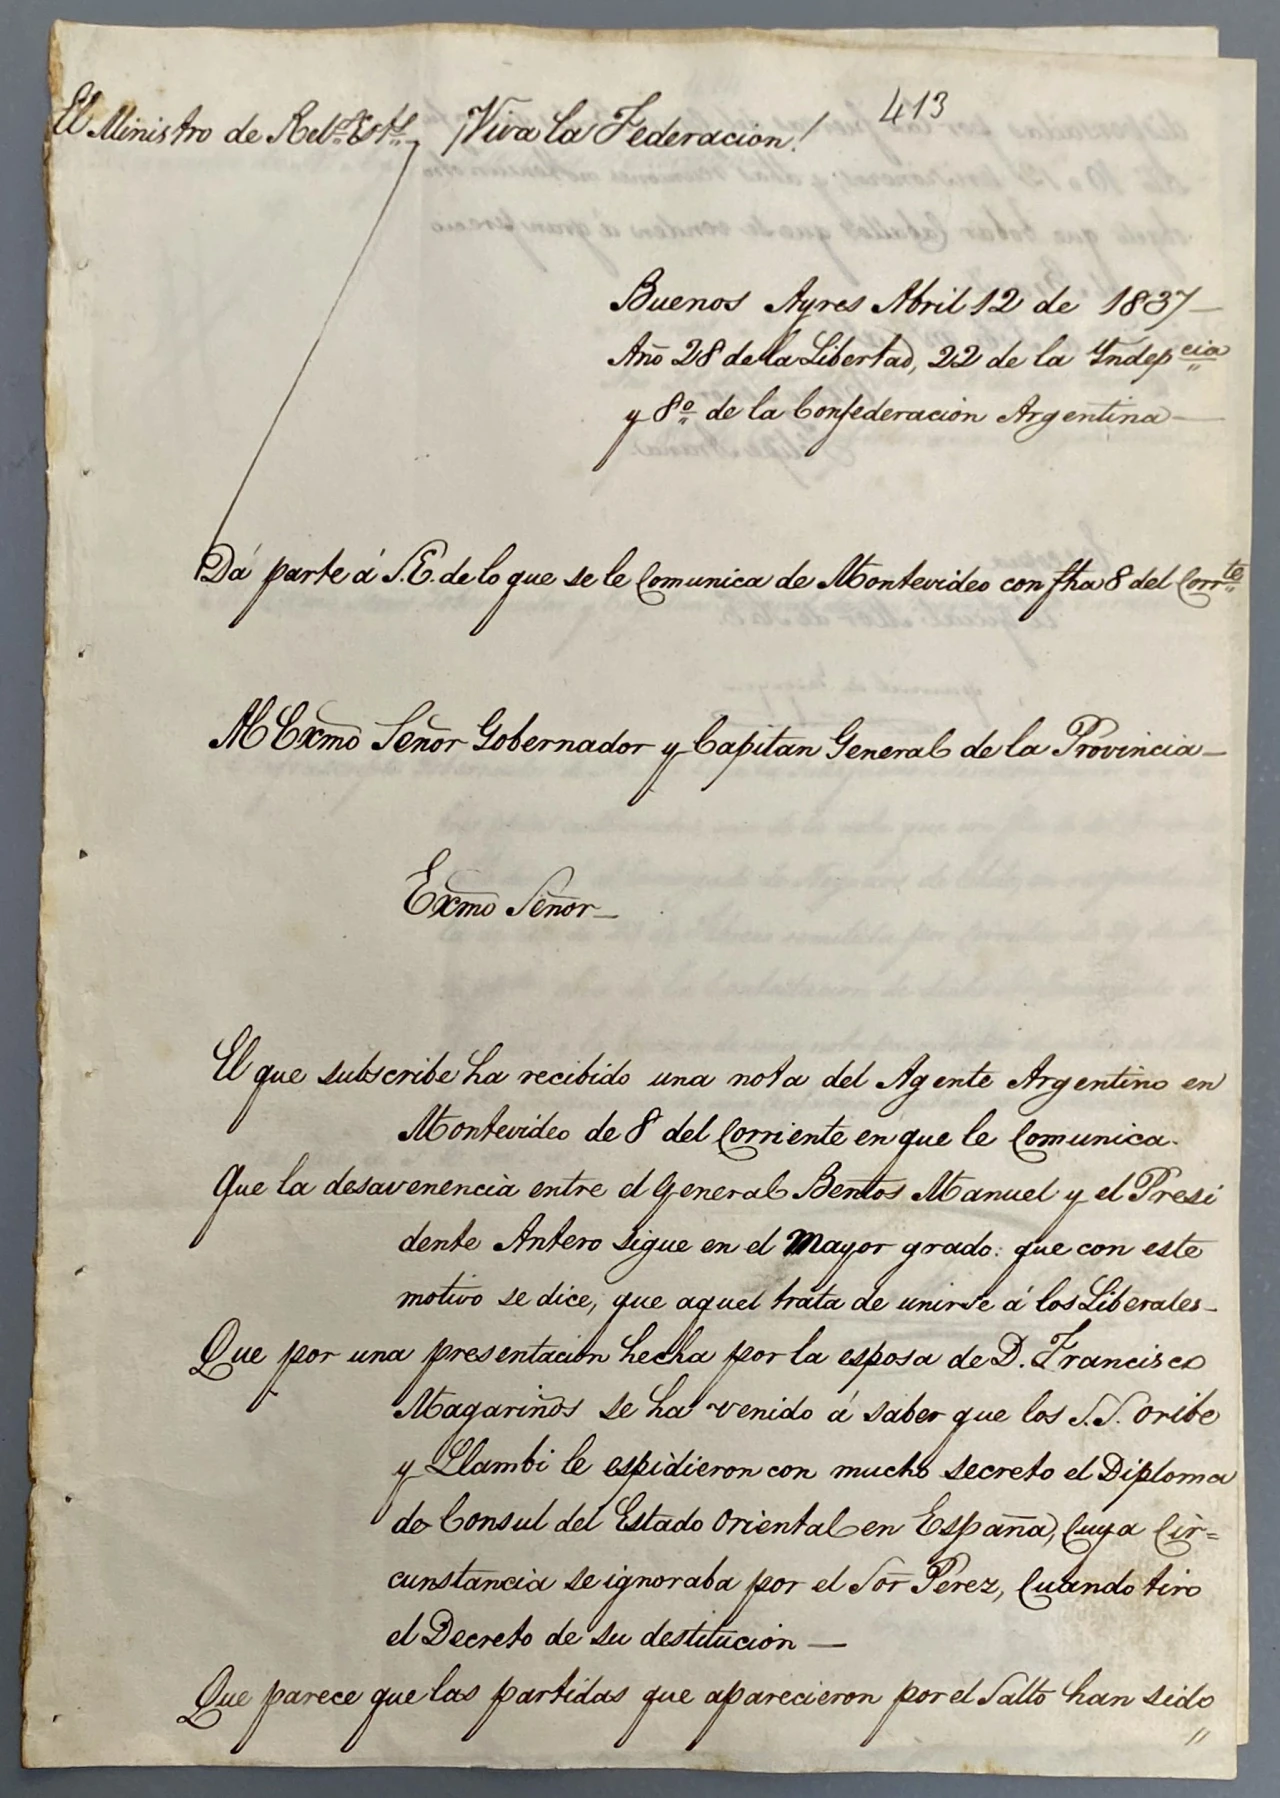 413
El Ministro de Rels. Exts. ¡Viva la Federacion!
Buenos Ayres Abril 12 de 1837—
Año 28 de la Libertad, 22 de la Yndepcia
y 8º de la Confederacion Argentina—
Dá parte á S.E. de lo que se le Comunica de Montevideo con fha 8 del Corrte
Al Exmo Señor Gobernador y Capitan General de la Provincia—
Exmo Señor—
El que subscribe ha recibido una nota del Agente Argentino en
Montevideo de 8 del Corriente en que le Comunica.
Que la desavenencia entre el General Bentos Manuel y el Presi
dente Antero sigue en el Mayor grado: que con este
motivo se dice, que aquel trata de unirse á los Liberales—
Que por una presentacion hecha por la esposa de D. Francisco
Magariños se ha venido á saber que los S.S. Oribe
y Llambi le espidieron con mucho secreto el Diploma
de Consul del Estado Oriental en España, Cuya Cir=
cunstancia se ignoraba por el Sor Perez, Cuando tiro
el Decreto de su destitucion—
Que parece que las partidas que aparecieron por el Salto han sido